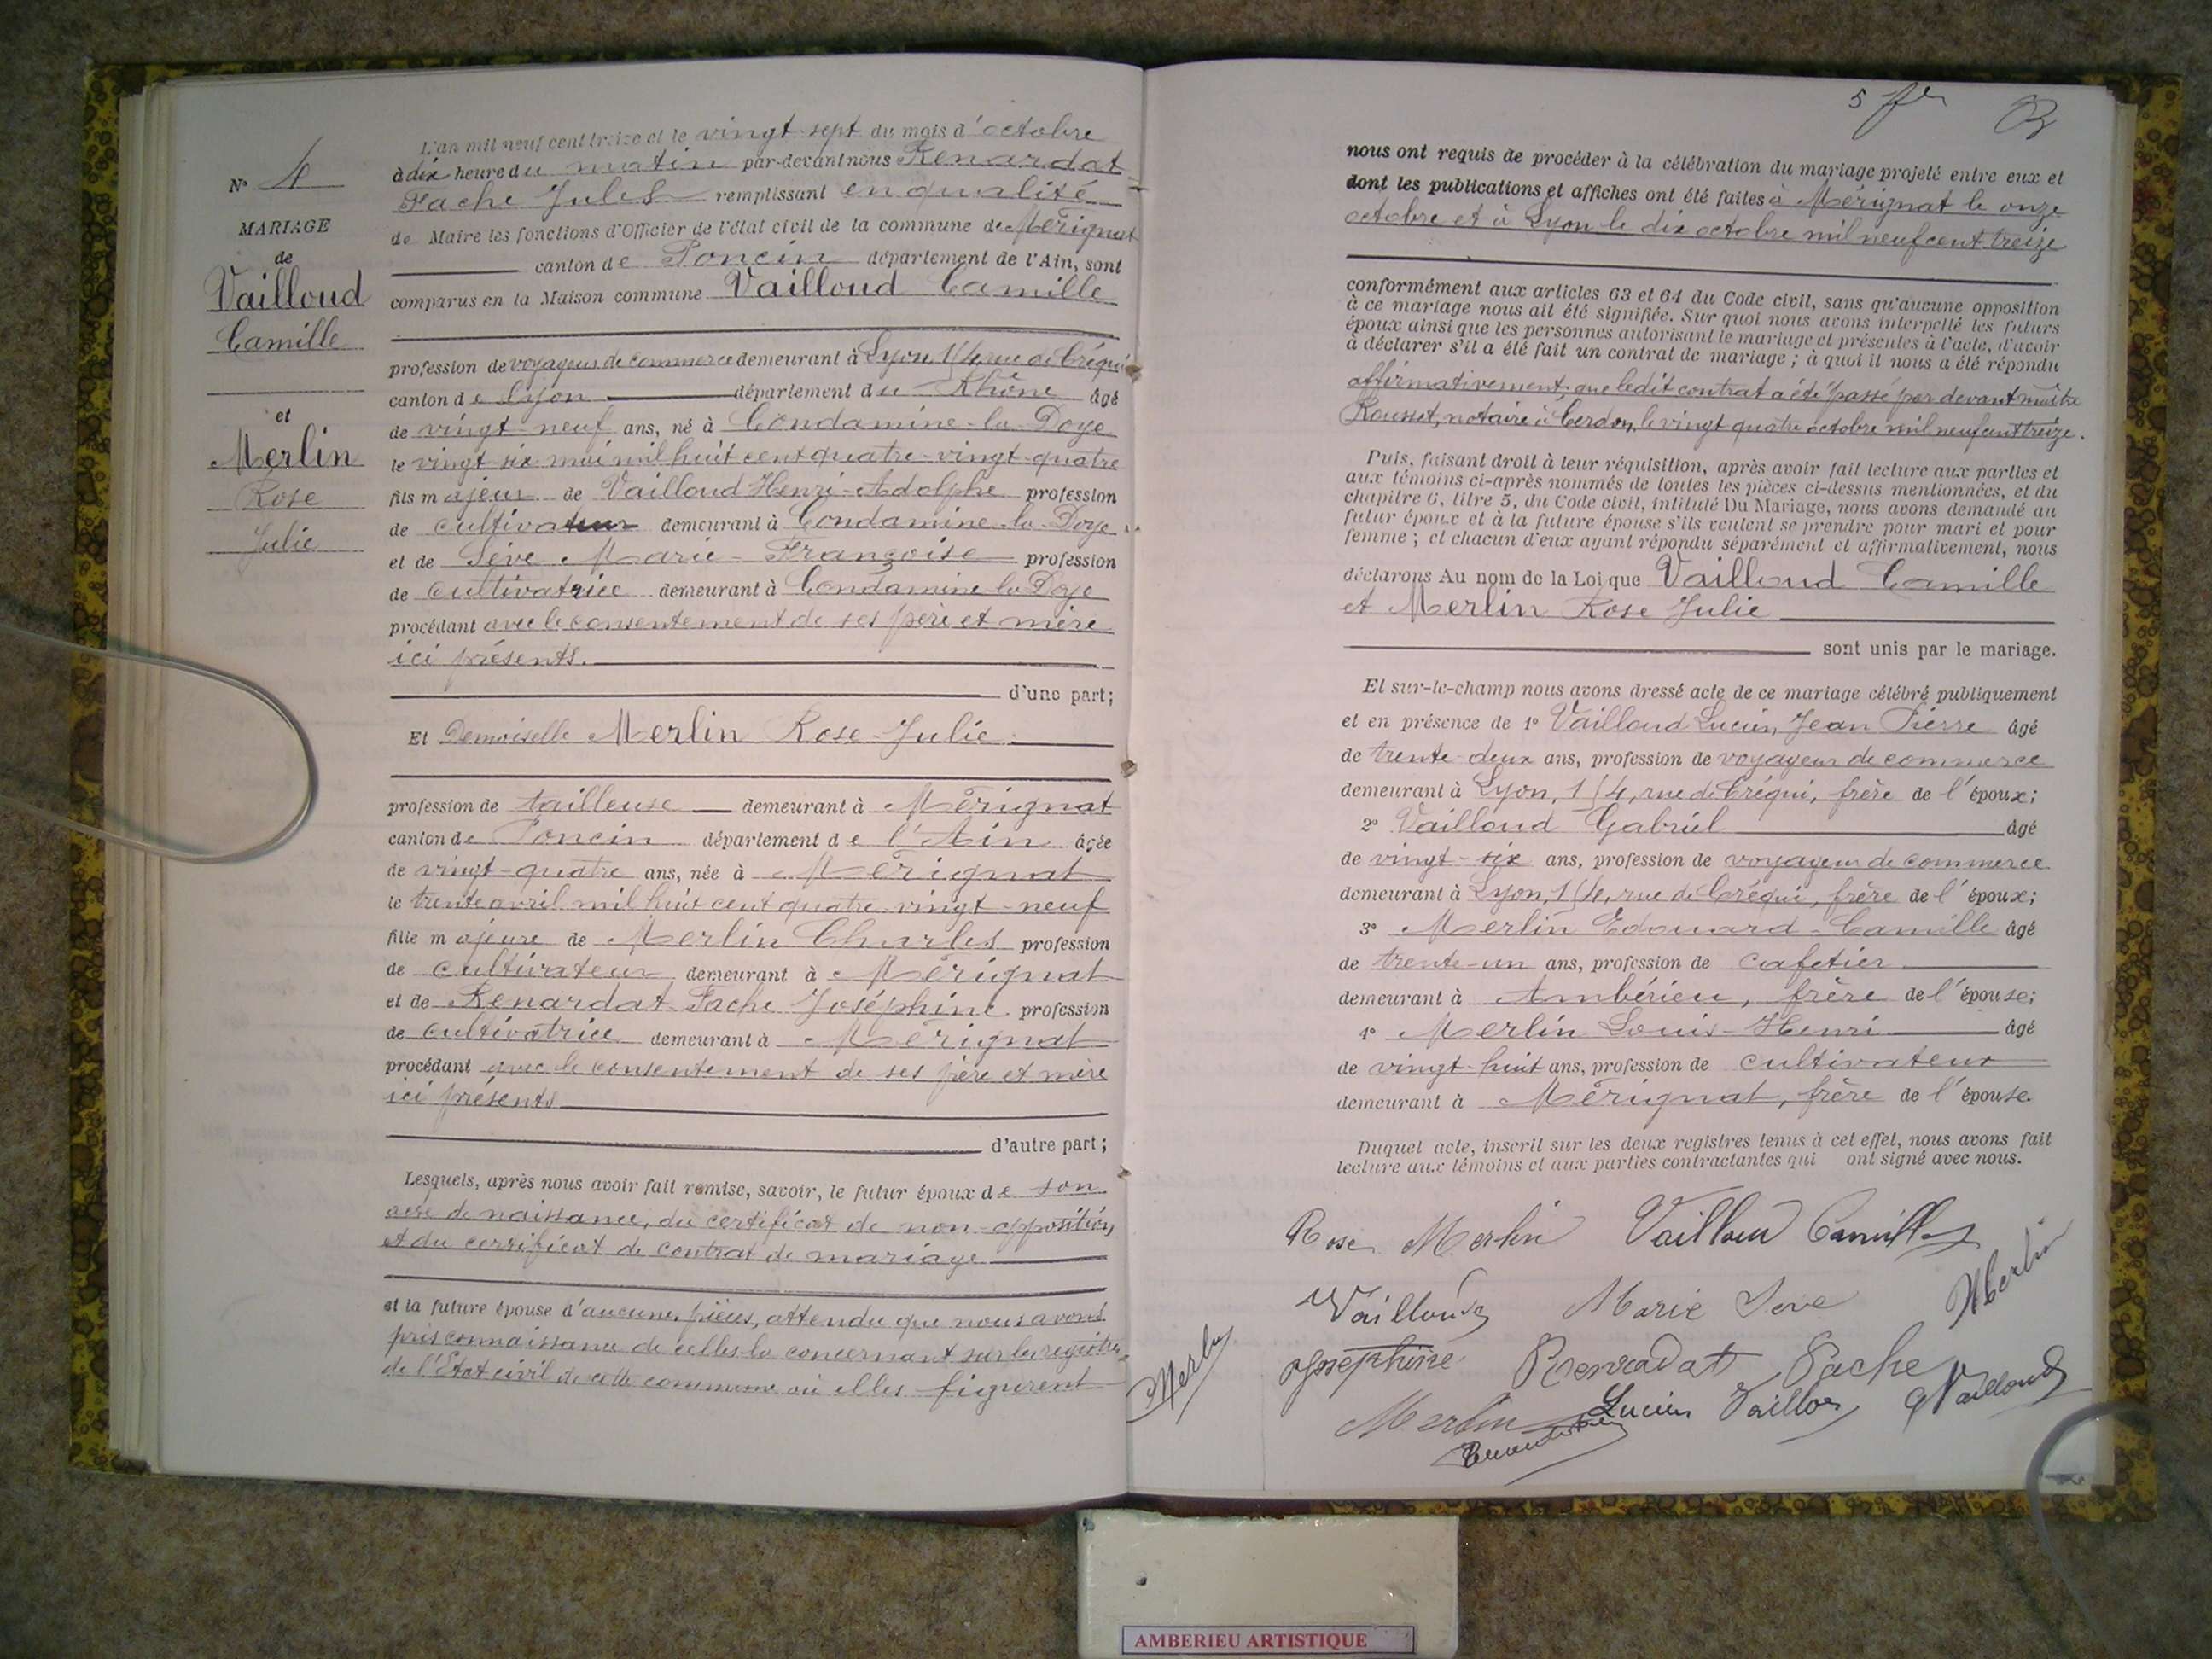 N° 4
MARIAGE
de
Vailloud
Camille
et
Merlin
Rose
Julie
L'an mil neuf cent treize et le vingt-sept du mois d'octobre
à dix heure du matin par-devant nous Renardat
Fache Jules remplissant en qualité
de Maire les fonctions d'Officier de l'état civil de la commune de Mérignat
canton de Poncin département de l'Ain, sont
comparus en la Maison commune Vailloud Camille
profession de voyageur de commerce demeurant à Lyon, 154 rue de Créqui
canton de Lyon département du Rhône âgé
de vingt-neuf ans, né à Condamine-la-Doye
le vingt-six mai mil huit cent quatre-vingt-quatre
fils majeur de Vailloud Henri-Adolphe profession
de cultivateur demeurant à Condamine-la-Doye
et de Sève Marie-Françoise profession
de cultivatrice demeurant à Condamine-la-Doye
procédant avec le consentement de ses père et mère
ici présents.
d'une part;
Et Demoiselle Merlin Rose-Julie
profession de tailleuse demeurant à Mérignat
canton de Poncin département de l'Ain âgée
de vingt-quatre ans, née à Mérignat
le trente avril mil huit cent quatre-vingt-neuf
fille majeure de Merlin Charles profession
de cultivateur demeurant à Mérignat
et de Renardat-Fache Joséphine profession
de cultivatrice demeurant à Mérignat
procédant avec le consentement de ses père et mère
ici présents
d'autre part;
Lesquels, après nous avoir fait remise, savoir, le futur époux de son
acte de naissance, du certificat de non-opposition,
et du certificat de contrat de mariage
et la future épouse d'aucunes pièces, attendu que nous avons
pris connaissance de celles la concernant sur les registres
de l'Etat civil de cette commune où elles figurent
5 fr
nous ont requis de procéder à la célébration du mariage projeté entre eux et
dont les publications et affiches ont été faites à Mérignat le onze
octobre et à Lyon le dix octobre mil neuf cent treize
conformément aux articles 63 et 64 du Code civil, sans qu'aucune opposition
à ce mariage nous ait été signifiée. Sur quoi nous avons interpellé les futurs
époux ainsi que les personnes autorisant le mariage et présentes à l'acte, d'avoir
à déclarer s'il a été fait un contrat de mariage; à quoi il nous a été répondu
affirmativement, que ledit contrat a été passé par devant maître
Rousset, notaire à Cerdon, le vingt quatre octobre mil neuf cent treize.
Puis, faisant droit à leur réquisition, après avoir fait lecture aux parties et
aux témoins ci-après nommés de toutes les pièces ci-dessus mentionnées, et du
chapitre 6, titre 5, du Code civil, intitulé Du Mariage, nous avons demandé au
futur époux et à la future épouse s'ils veulent se prendre pour mari et pour
femme; et chacun d'eux ayant répondu séparément et affirmativement, nous
déclarons Au nom de la Loi que Vailloud Camille
et Merlin Rose Julie
sont unis par le mariage.
Et sur-le-champ nous avons dressé acte de ce mariage célébré publiquement
et en présence de 1° Vailloud Lucien, Jean Pierre âgé
de trente-deux ans, profession de voyageur de commerce
demeurant à Lyon, 154, rue de Créqui, frère de l'époux;
2° Vailloud Gabriel âgé
de vingt-six ans, profession de voyageur de commerce
demeurant à Lyon, 154, rue de Créqui, frère de l'époux;
3° Merlin Edouard-Camille âgé
de trente-un ans, profession de cafetier
demeurant à Ambérieu, frère de l'épouse;
4° Merlin Louis-Henri âgé
de vingt-huit ans, profession de cultivateur
demeurant à Mérignat, frère de l'épouse.
Duquel acte, inscrit sur les deux registres tenus à cet effet, nous avons fait
lecture aux témoins et aux parties contractantes qui ont signé avec nous.
Rose Merlin Vailloud Camille
Vailloud Marie Seve Merlin
Josephine Renardat Fache
Merlin
Merlin Lucien Vailloud G Vailloud
AMBERIEU ARTISTIQUE